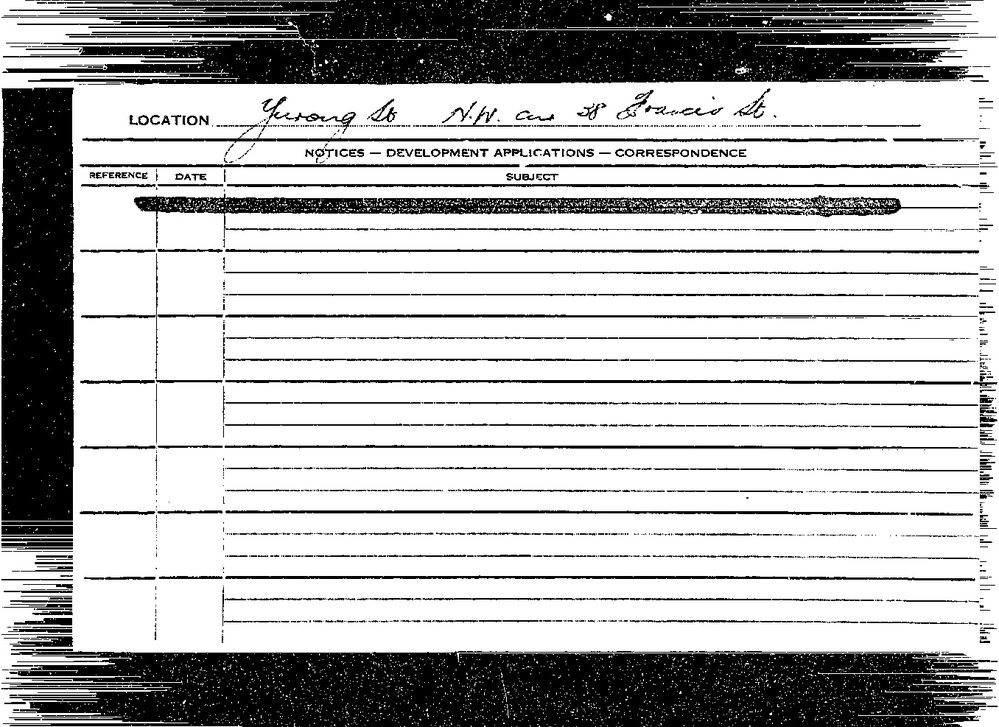 LOCATION Yurong St N.W. cnr 38 Francis St.
NOTICES — DEVELOPMENT APPLICATIONS — CORRESPONDENCE
REFERENCE DATE SUBJECT